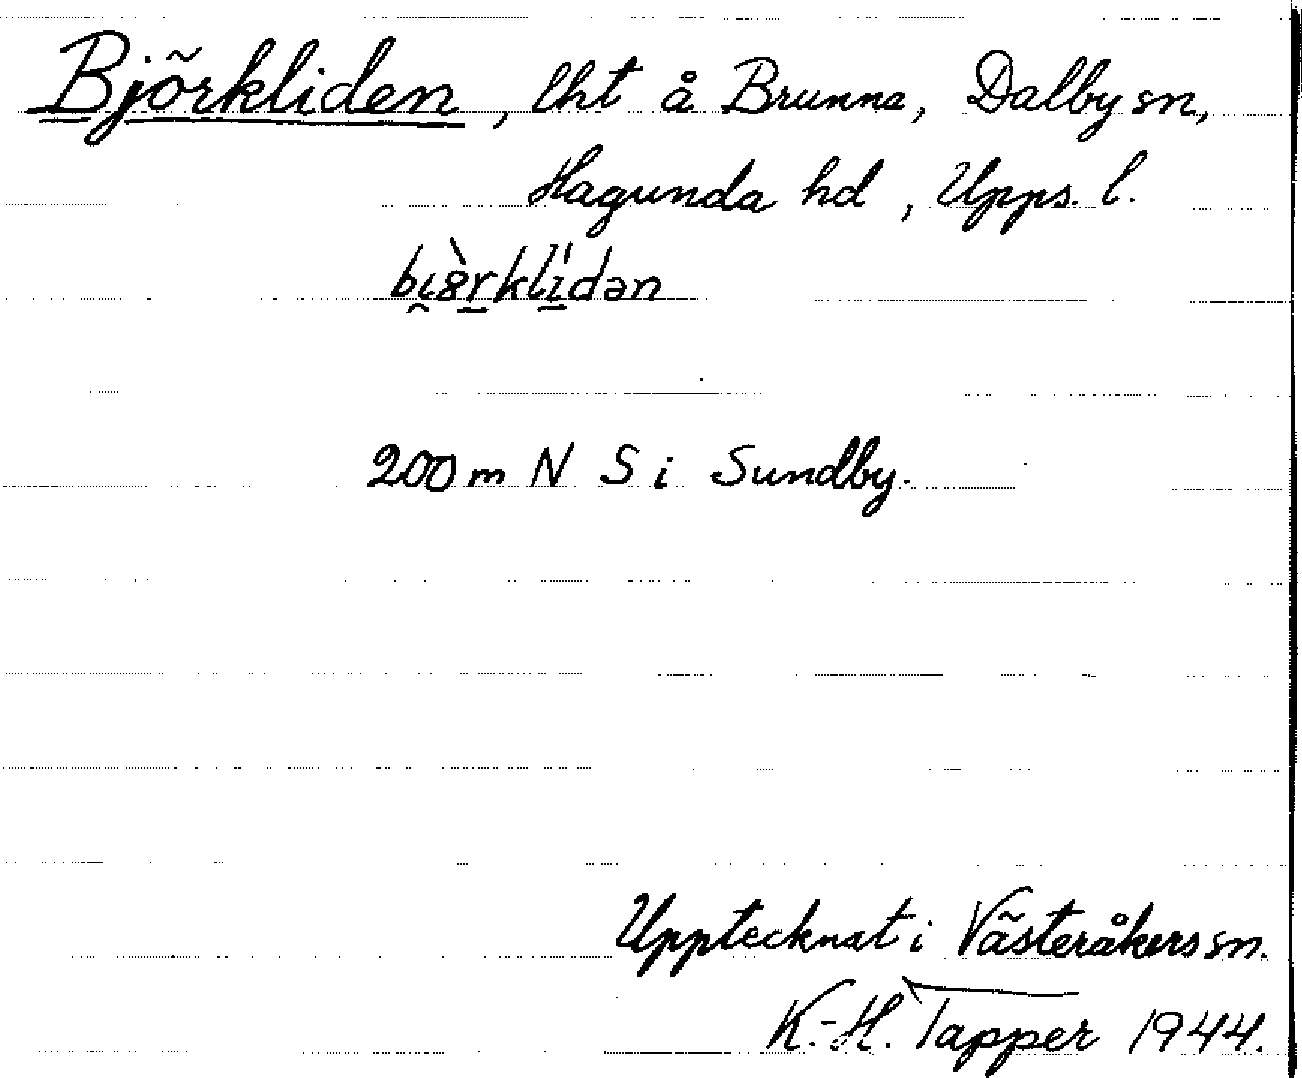 Björkliden, lht å Brunna, Dalby sn,
Hagunda hd, Upps. l.
bi̯ö̀r̠kli̠̍dən
200 m N S i Sundby.
Upptecknat i Västeråkers sn.
K.-H. Tapper 1944.